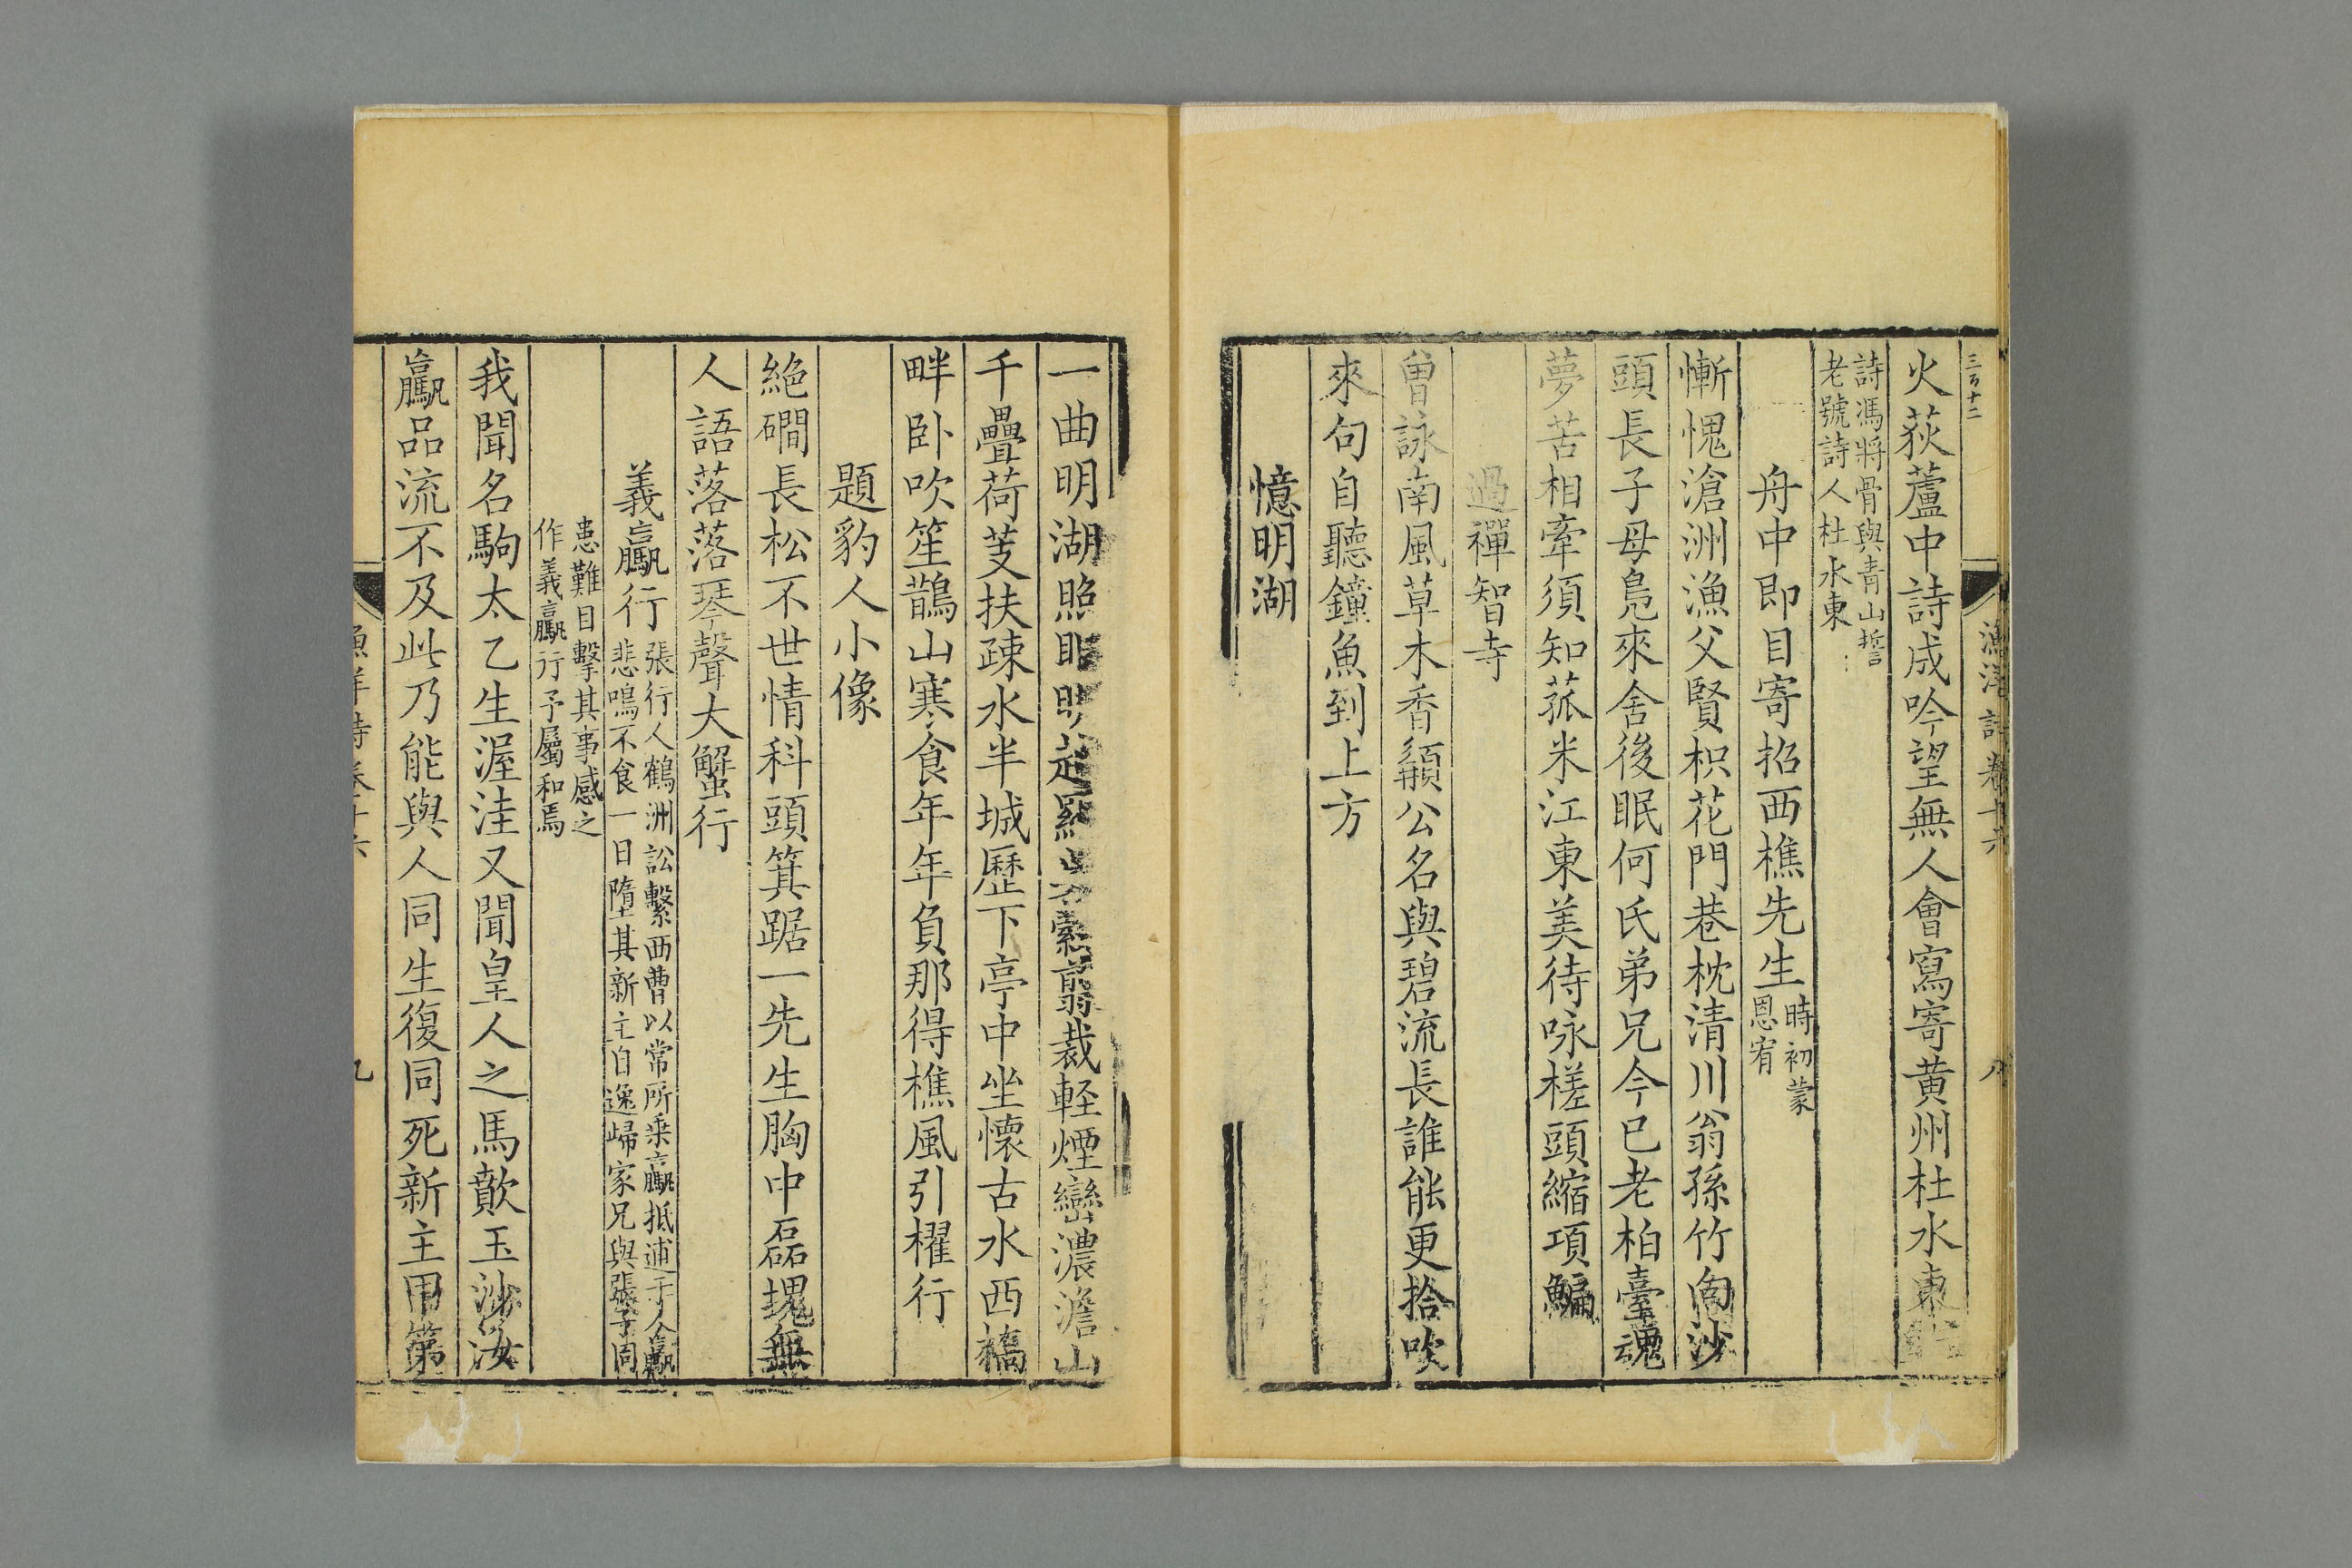 三百十二
漁洋詩卷十六
八
火荻蘆中詩成吟望無人會寫寄黄州杜水東
詩馮將骨與青山誓
老號詩人杜水東
舟中即目寄招西樵先生時初蒙
恩宥
慚愧滄洲漁父賢枳花門巷枕清川翁孫竹向沙
頭長子母鳧來舍後眠何氏弟兄今已老柏臺魂
夢苦相牽須知菰米江東美待咏槎頭縮項鯿
過禪智寺
曾詠南風草木香纇公名與碧流長誰能更拾吹
來句自聽鐘魚到上方
憶明湖
一曲明湖照眼明翦裁輕煙巒濃澹山
千疊荷芰扶疎水半城歷下亭中坐懷古水西橋
畔卧吹笙鵲山寒食年年負那得樵風引櫂行
題豹人小像
絶磵長松不世情科頭箕踞一先生胸中磊塊無
人語落落琴聲大蟹行
義驘行張行人鶴洲訟繫西曹以常所乘驘抵逋于人驘
悲鳴不食一日墮其新主自逸歸家兄與張子同
患難目擊其事感之
作義驘行予屬和焉
我聞名駒太乙生渥洼又聞皇人之馬歕玉沙汝
驘品流不及此乃能與人同生復同死新主甲第
漁洋詩卷十六
九